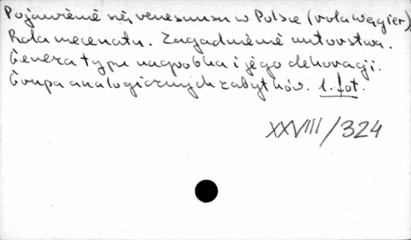 Pojawienie się renesansu w Polsce (rola węgier)
Rola mecenatu. Zagadnienie autorstwa.
Geneza typu nagrobka i jego dekoracji.
Grupa analogicznych zabytków. 1. fot.
XXVIII/324